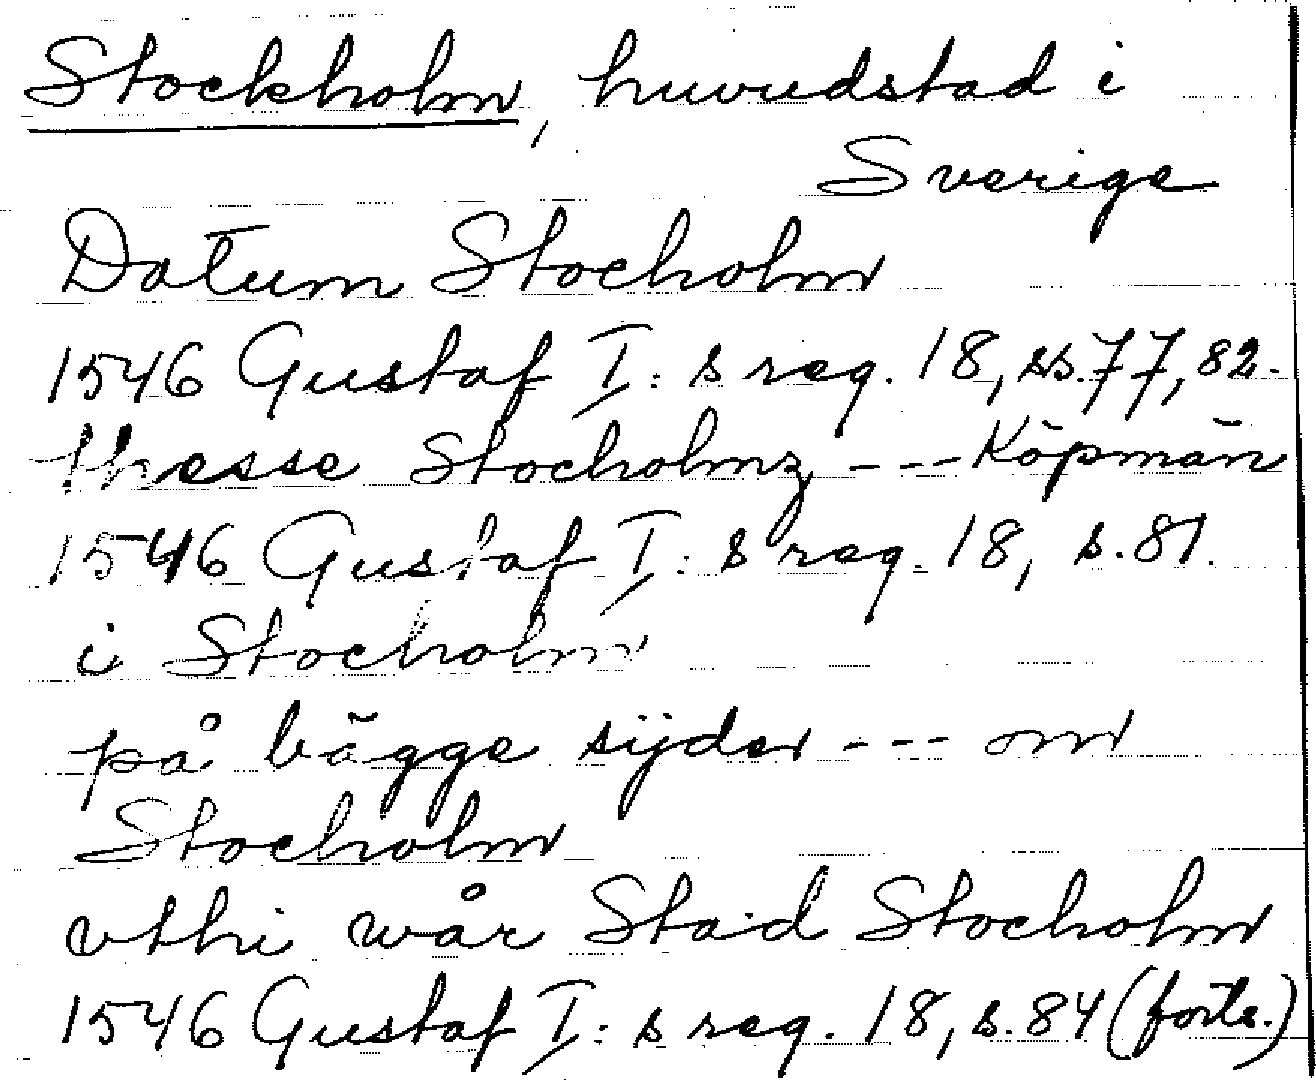 Stockholm, huvudstad i
Sverige
Datum Stocholm
1546 Gustaf I: s reg. 18, ss. 77, 82.
thesse Stocholmz --- Köpmän
1546 Gustaf I: s reg. 18, s. 81.
i Stocholm
på bägge sijder --- om
Stocholm
vthi wår Stad Stocholm
1546 Gustaf I: s reg. 18, s. 84 (forts.)